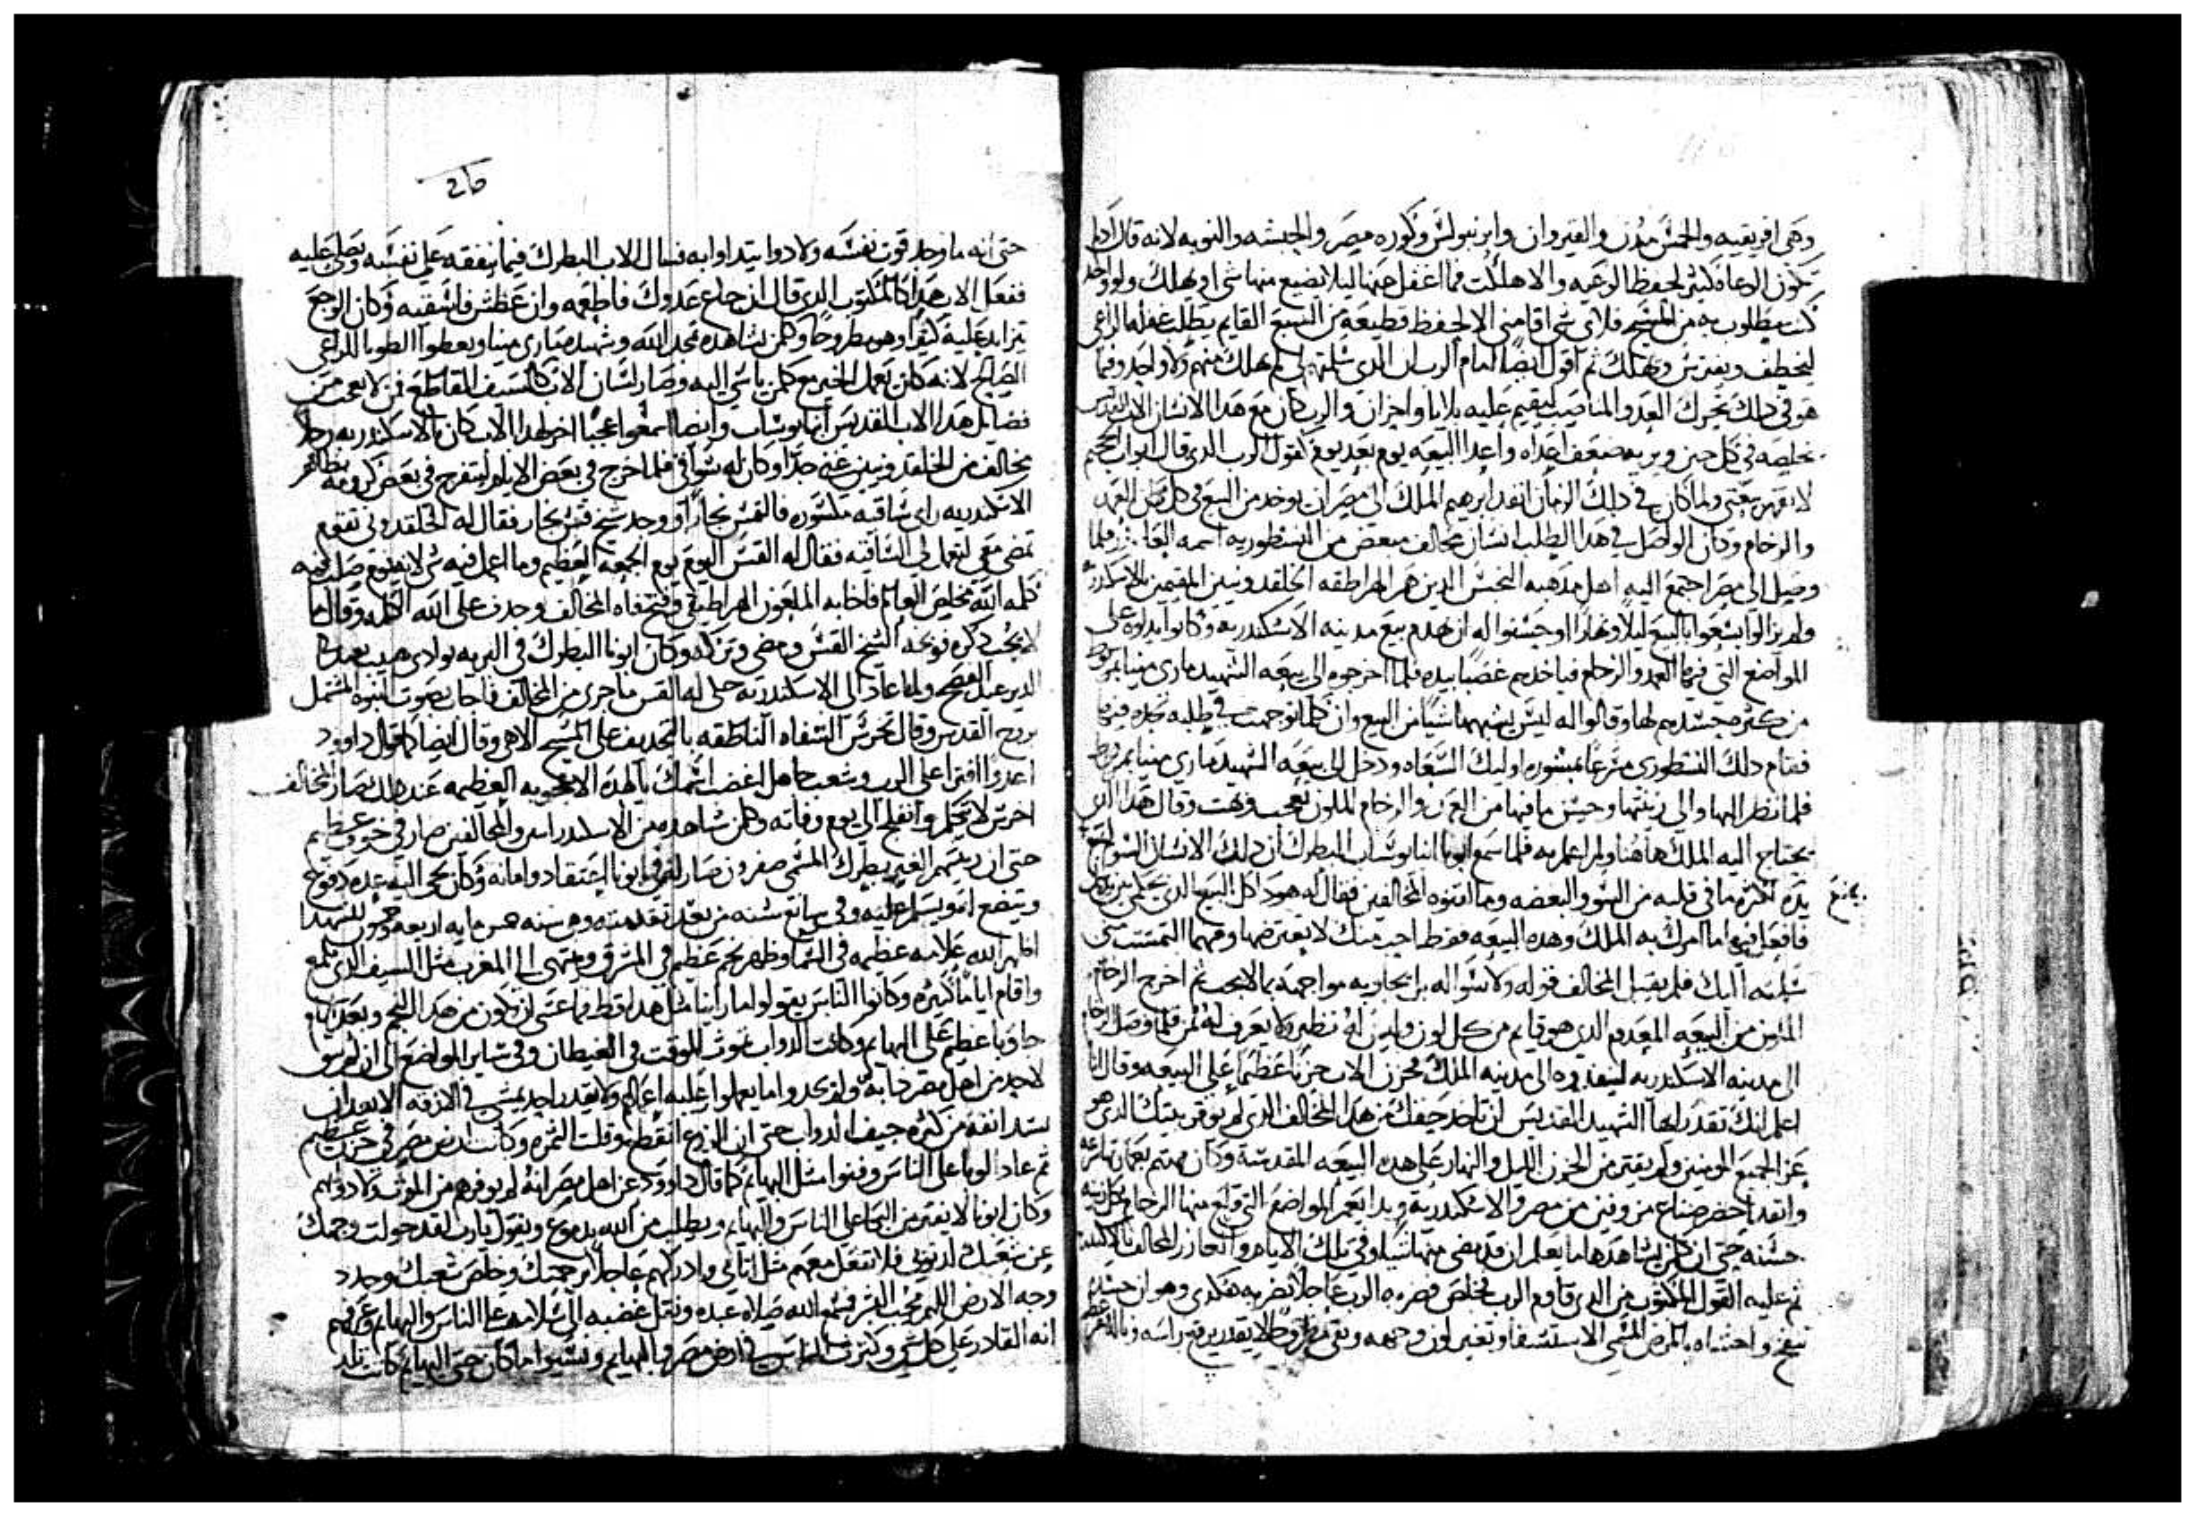 وهى افريقيه والخمس مدن والقيروان واطرنبولس وكوره مصر والحبشه والنوبه لانه قال اذا لم
تكون الرعاه كثير لحفظ الرعيه والا هلكت فما اغفل عنها ليلا يضيع منها شى او يهلك ولو واحد
كنت مطلوب به من المسيح فلاى شى اقامنى الا لحفظ قطيعه من السبع القايم يطلب غفله الراعى
ليخطف ويفترس ويهلك ثم اقول ايضا امام الرب ان الدى سلمتهم لى لم يهلك منهم ولا واحد وفيما
هو فى دلك تحرك العدو المناصب ليقيم عليه بلايا واحزان والرب كان مع هدا الانسان الاب القديس
يخلصه فى كل حين ويريه ضعف اعداه واعدا البيعه يوم بعد يوم كقول الرب الدى قال ابواب الجحيم
لا تقهر بيعتى ولما كان فى دلك الزمان انفد ابرهيم الملك الى مصر ان يوخد من البيع فى كل مكان العمد
والرخام وكان الواصل فى هدا الطلب انسان مخالف مبغض من النسطوريه اسمه العازر فلما
وصل الى مصر اجتمع اليه اهل مدهبه النجس الدين هم الهراطقه الخلقدونيين المقيمين بالاسكندريه
ولم يزالوا يسعوا بالبيع ليلا ونهارا وحسنوا له ان يهدم بيع مدينه الاسكندريه وكانوا يدلوه على
المواضع التى فيها العمد والرخام فياخدهم غصبا بيده فلما اخرجوه الى بيعه الشهيد مارى مينا بمريوط
من كثره حسدهم لها وقالوا له ليس يشبهها شيا من البيع وان كلما توجهت فى طلبه تجده فيها
فقام دلك النسطورى مسرعا بمشوره اوليك السعاه ودخل الى بيعه الشهيد مارى مينا بمريوط
فلما نظر اليها والى زينتها وحسن ما فيها من العمد والرخام الملون تعجب وبهت وقال هدا الدى
يحتاج اليه الملك هاهنا ولم اعلم به فلما سمع ابونا انبا يوساب البطرك ان دلك الانسان السو
يده اكثر ما فى قلبه من السو والبغضه وما لقنوه المخالفين فقال له هودا كل البيع الدى بحكمى بين يديك
فافعل فيهم اما امرك به الملك وهده البيعه فقط احب منك لا تعترضها ومهما التمست منى
سلمته اليك فلم يقبل المخالف قوله ولا سواله بل جاوبه مواجهه بما لا يجب ثم اخرج الرخام
الملون من البيعه المعدوم الدى هو قايم من كل لون وليس له نظير ولا يعرف له ثمن فلما وصل الرخام
الى مدينه الاسكندريه لينفدوه الى مدينه الملك فحزن الاب حزنا عظيما على البيعه وقال انا
اعلم انك تقدر ايها الشهيد القديس ان تاخد حقك من هدا المخالف الدى لم يوقر بيتك الدى هو
عز لجميع المومنين ولم يفتر من الحزن الليل والنهار على هده البيعه المقدسه وكان مهتم بعمارتها سرعه
وانفد احضر صناع مزوقين من مصر والاسكندريه وبدا يعمر المواضع التى قلع منها الرخام بكل زينه
حسنه حتى ان كل من يشاهدها ما يعلم ان قد مضى منها شيا وفى تلك الايام والعازر المخالف بالاسكندريه
تم عليه القول المكتوب من الدى قاوم الرب فخلص فضربه الرب عاجلا بضربه هكدى وهو ان جسده
نفخ واحشاه بالمرض المسمى الاستسقا وتغير لون وجهه وبقى مطروحا لا يقدر يرفع راسه
يمنع
حتى انه ما وجد قوت نفسه ولا دوا يتداوا به فسال الاب البطرك فيما ينفقه على نفسه ويصلى عليه
ففعل الاب هدا كالمكتوب الدى قال ان جاع عدوك فاطعمه وان عطش فاسقيه وكان الوجع
يتزايد عليه كثيرا وهو مطروحا وكلمن يشاهده يمجد الله وشهيده مارى مينا ويعطوا الطوبا للراعى
الصالح لانه كان يعمل الخير مع كلمن ياسى اليه وصار لسان الاب كالسيف القاطع فمن لا يعجب من
فضايل هدا الاب القديس انبا يوساب وايضا اسمعوا عجبا اخر لهدا الاب كان بالاسكندريه رجلا
مخالف من الخلقدونيين غنى جدا وكان له سواقى فلما خرج فى بعض الايام ليتفرج فى بعض كرومه بظاهر
الاسكندريه راى ساقيه مكسوره فالتمس نجارا ووجد شيخ قس نجار فقال له الخلقدونى تقوم
تمضى معى لتعمل لى الساقيه فقال له القس اليوم يوم الجمعه العظيم وما اعمل فيه شى لانه يوم صلب فيه
كلمه الله مخلص العالم فاجابه الملعون الهراطيقى وفتح فاه المخالف وجدف على الله الكلمه وقال ما
لا يجب دكره فوبخه الشيخ القس ومضى وتركه وكان ابونا البطرك فى البريه بوادى هبيب يعيد فى
الدير عيد الفصح ولما عاد الى الاسكندريه حكى له القس ما جرى من المخالف فاجاب بصوت النبوه المشتمل
بروح القدس وقال تخرس الشفاه الناطقه بالتجديف على المسيح الاهى وقال ايضا كما قال داوود
اعدوا افترا على الرب وشعب جاهل اغضب اسمك بالهده الاعجوبه العظيمه عند دلك صار المخالف
اخرس لا يتكلم وانفلج الى يوم وفاته وكلمن شاهده من الاسكندرانيين والمخالفين صار فى خوف عظيم
حتى ان ريسهم الغير بطرك المسمى صفرون صار له فى ابونا اعتقاد وامانه وكان يجى اليه عده دفوع
ويتضع له ويسلم عليه وفى سابع سنه من بعد تقدمته وهى سنه خمس مايه اربعه وخمسون للشهدا
اظهر الله علامه عظيمه فى السما وظهر نجم عظيم فى الشرق ومنتهى الى المغرب مثل السيف الدى يلمع
واقام اياما كثيره وكانوا الناس يقولوا ما راينا مثل هدا قط فما عسى ان يكون من هدا النجم وبعد ايام
جا وبا عظيم على البهايم وكانت الدواب تموت للوقت فى الغيطان وفى ساير المواضع الى ان لم يبق
لاحد من اهل مصر دابه ولم يجدوا ما يعملوا عليه اعمالهم ولا يقدر احد يمشى فى الازقه الا بعد ان
يسد انفه من كثره جيف الدواب حتى ان الزرع انقطع وقلت الثمره وكانت ارض مصر فى حزن عظيم
ثم عاد الوبا على الناس وفنوا مثل البهايم كما قال داوود عن اهل مصر انه لم يوفرهم من الموت ولا دوابهم
وكان ابونا لا يفتر من البكا على الناس والبهايم ويطلب من الله بدموع ويقول يارب لقد حولت وجهك
عن شعبك لدنوبى فلا تفعل معهم مثل اثامى وادركهم عاجلا برحمتك وخلص شعبك وجدد
وجه الارض اللهم محب البشر فسمع الله صلاه عبده ونقل غضبه الى سلامه على الناس والبهايم وعرفهم
انه القادر على كل شى وكثرت الناس فى ارض مصر والبهايم ونسيوا ما كان حتى البهايم كانت تلد